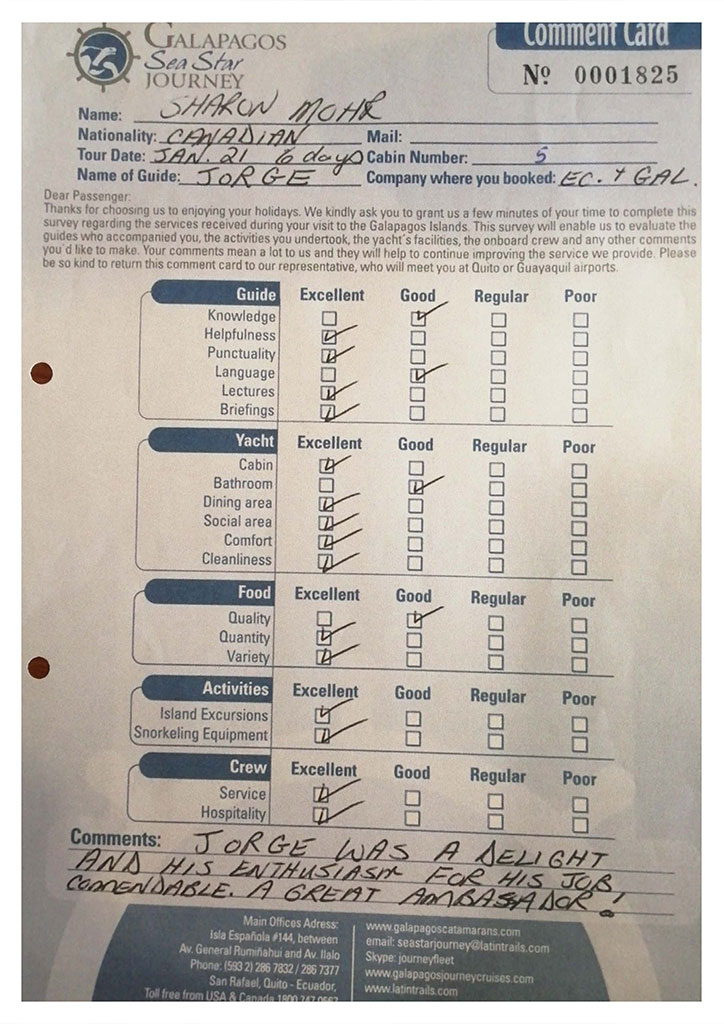 GALAPAGOS
Sea Star
JOURNEY
Comment Card
Nº 0001825
Name: SHARON MOHR
Nationality: CANADIAN Mail:
Tour Date: JAN. 21 6 days Cabin Number: 5
Name of Guide: JORGE Company where you booked: EC. + GAL.
Dear Passenger:
Thanks for choosing us to enjoying your holidays. We kindly ask you to grant us a few minutes of your time to complete this
survey regarding the services received during your visit to the Galapagos Islands. This survey will enable us to evaluate the
guides who accompanied you, the activities you undertook, the yacht´s facilities, the onboard crew and any other comments
you´d like to make. Your comments mean a lot to us and they will help to continue improving the service we provide. Please
be so kind to return this comment card to our representative, who will meet you at Quito or Guayaquil airports.
Guide Excellent Good Regular Poor
Knowledge
Helpfulness
Punctuality
Language
Lectures
Briefings
Yacht Excellent Good Regular Poor
Cabin
Bathroom
Dining area
Social area
Comfort
Cleanliness
Food Excellent Good Regular Poor
Quality
Quantity
Variety
Activities Excellent Good Regular Poor
Island Excursions
Snorkeling Equipment
Crew Excellent Good Regular Poor
Service
Hospitality
Comments: JORGE WAS A DELIGHT
AND HIS ENTHUSIASM FOR HIS JOB
COMENDABLE. A GREAT AMBASSADOR!
Main Offices Adress:
Isla Española #144, between
Av. General Rumiñahui and Av. Ilalo
Phone: (593 2) 286 7832 / 286 7377
San Rafael, Quito - Ecuador,
Toll free from USA & Canada 1800 747
www.galapagoscatamarans.com
email: seastarjourney@latintrails.com
Skype: journeyfleet
www.galapagosjourneycruises.com
www.latintrails.com